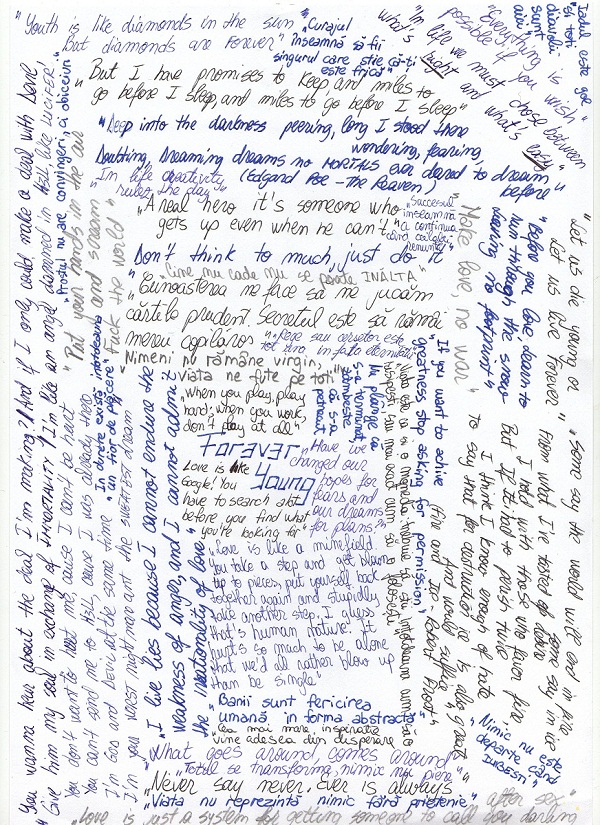 "Youth is like diamonds in the sun,
But diamonds are Forever"
"Curajul
înseamnă să fii
singurul care știe că-ți
este frică"
"In life we must chose between
what's right and what's easy"
"Everything is
possible if you wish"
"Iadul este gol
și toți
diavolii
sunt
aici"
"But I have promises to keep, and miles to
go before I sleep, and miles to go before I sleep"
"Deep into the darkness peering, long I stood there
wondering, fearing,
Doubting, dreaming dreams no MORTALS ever dared to dream
before"
(Edgard Poe - The Raven)
"In life creativity
rules the day"
"A real hero it's someone who
gets up even when he can't"
"Succesul
înseamnă
a continua
când ceilalți
renunță"
"Don't think to much, just do it"
"Cine nu cade nu se poate ÎNĂLȚA"
"Cunoașterea me face să me jucăm
cărțile prudent. Secretul este să rămâi
mereu copilăros"
"Rege sau cerșetor este
tot una in fata eternitatii"
"Nimeni nu rămâne virgin,
viata ne fute pe toti"
"When you play, play
hard; when you work,
don't play at all"
Forever
Young
Love is like
Google! You
have to search alot
before you find what
you're looking for"
"Have we
changed our
hopes for
fears and
our dreams
for plans?"
"Love is like a minefield.
You take a step and get blown
up to pieces, put yourself back
together again and stupidly
take another step, I guess
that's human nature. It
hurts so much to be alone
that we'd all rather blow up
than be single"
"Banii sunt fericirea
umană in forma abstractă"
"Cea mai mare inspiratie
vine adesea din disperare"
"What goes around, comes around"
"Totul se transformă, nimix nu piere"
"Never say never. Ever is always"
"Viata nu reprezintă nimic fără prietenie"
"Love is just a system for getting someone to call you darling
after sex"
"You wanna hear about the deal I'm making?/And if I only could, make a deal with Devil,
Give him my soul in exchange of IMMORTALITY / I'm like an angel damned in Hell, like LUCIFER
You don't want to hurt me, cause I can't be hurt
You can't send me to Hell, cause I was already there
I'm God and Devil at the same time
I'm your worst nightmare and the sweetest dream
"Prostul nu are convingeri, ci obiceiuri"
"Put your hands in the air
and scream
Fuck the world"
"In durere există întotdeauna
un fior de plăcere"
"I live lies because I cannot endure the
weakness of anger, and I cannot admit
the irrationality of love"
"Nu plânge ca
s-a terminat,
zâmbeste
că s-a
petrecut"
"If you want to achive
greatness stop asking for permission"
"Make love, no war"
"Before you love, learn to
run through the snow
leaving no footprint"
"Let us die young or
Let us live forever"
"Some say the world will end in fire
some say in ice
From what I've tasted of desire
I hold with those who favor fire
But if it had to perish twice
I think I know enough of hate
to say that for destruction ice is also great
And would suffice
(Fire and Ice - Robert Frost)
"Nimic nu este
departe când
IUBEȘTI"